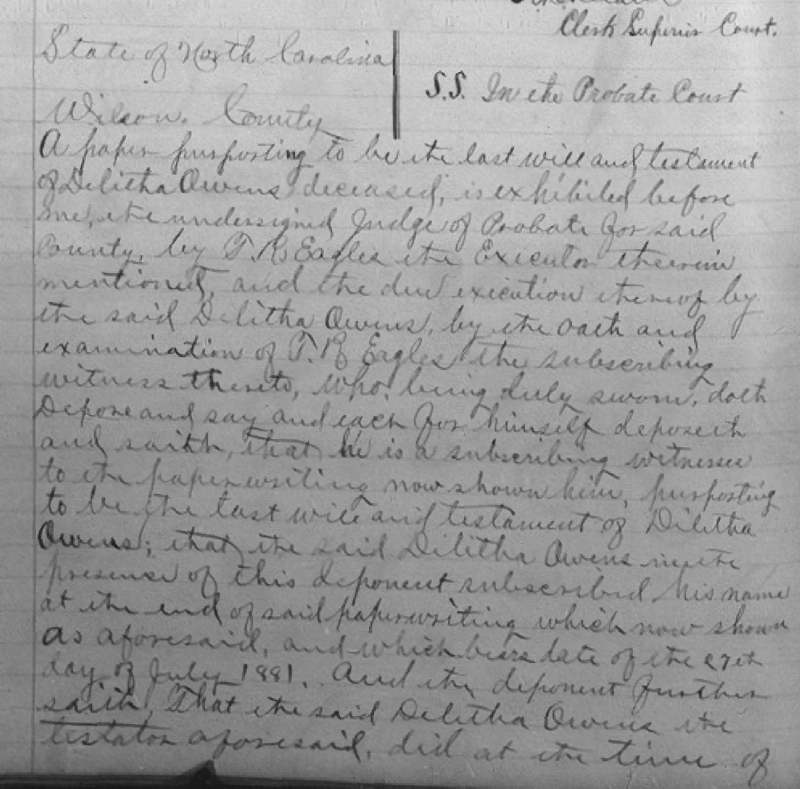 Clerk Superior Court.
State of North Carolina
S.S. In the Probate Court
Wilson County
A paper purporting to be the last will and testament
of Delitha Owens deceased, is exhibited before
me, the undersigned Judge of Probate for said
County, by T. R. Eagles the Executor therein
mentioned, and the due execution thereof by
the said Delitha Owens, by the oath and
examination of T. R. Eagles the subscribing
witness thereto, who, being duly sworn, doth
Depose and say and each for himself deposeth
and saith, that he is a subscribing witnesses
to the paper writing now shown him, purporting
to be the last will and testament of Dilitha
Owens; that the said Dilitha Owens in the
presense of this deponent subscribed his name
at the end of said paper writing which now shown
as aforesaid, and which bears date of the 27th
day of July 1881. And the deponent further
saith, That the said Delitha Owens the
testator aforesaid, did at the time of